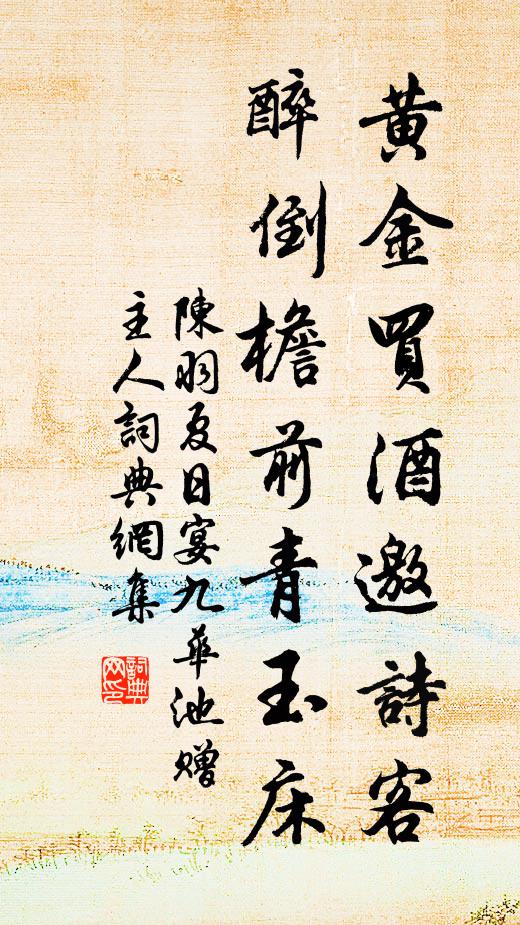 黄金買酒邀詩客
醉倒檐前青玉床
陳羽夏日宴九華池贈
主人詞典網集
詞典网印